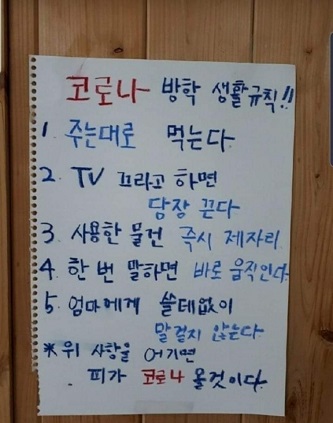 코로나 방학 생활규칙!!
1. 주는대로 먹는다
2. TV 끄라고 하면
당장 끈다
3. 사용한 물건 즉시 제자리
4. 한 번 말하면 바로 움직인다
5. 엄마에게 쓸데없이
말걸지 않는다
※ 위 사항을 어기면
피가 코로나 올것이다.